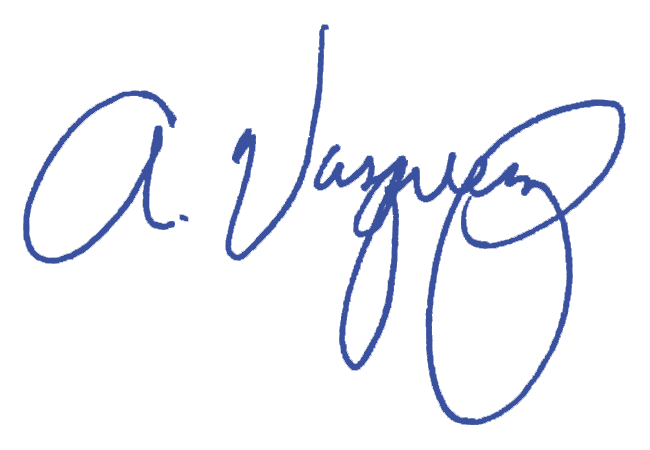 A. Vasquez